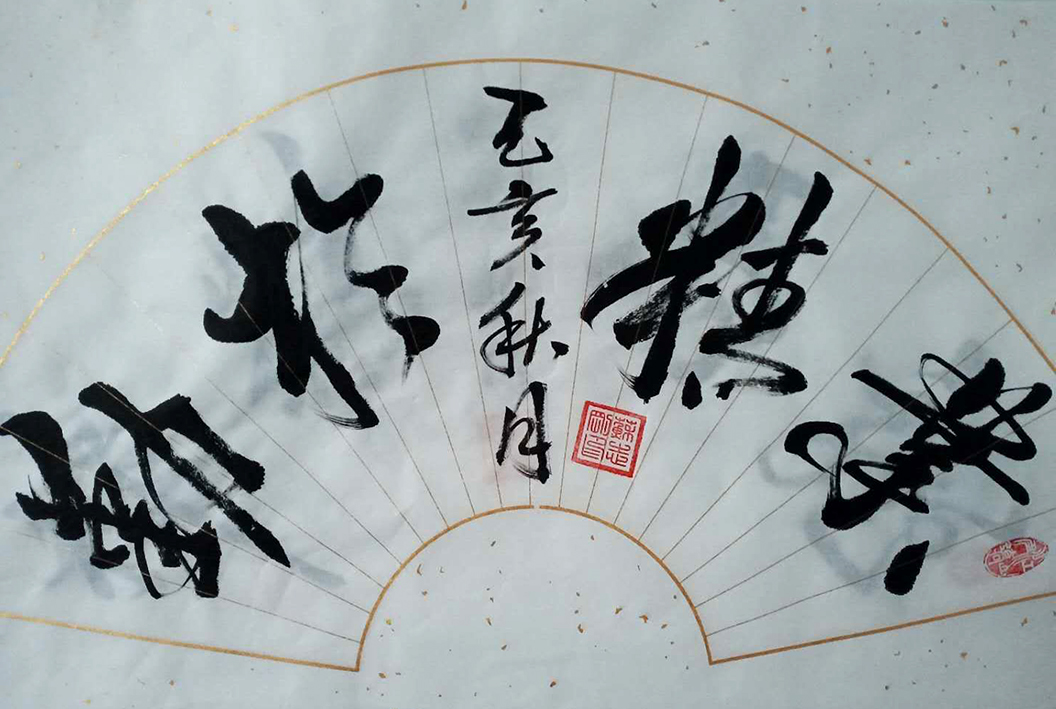 業精於勤
己亥秋月